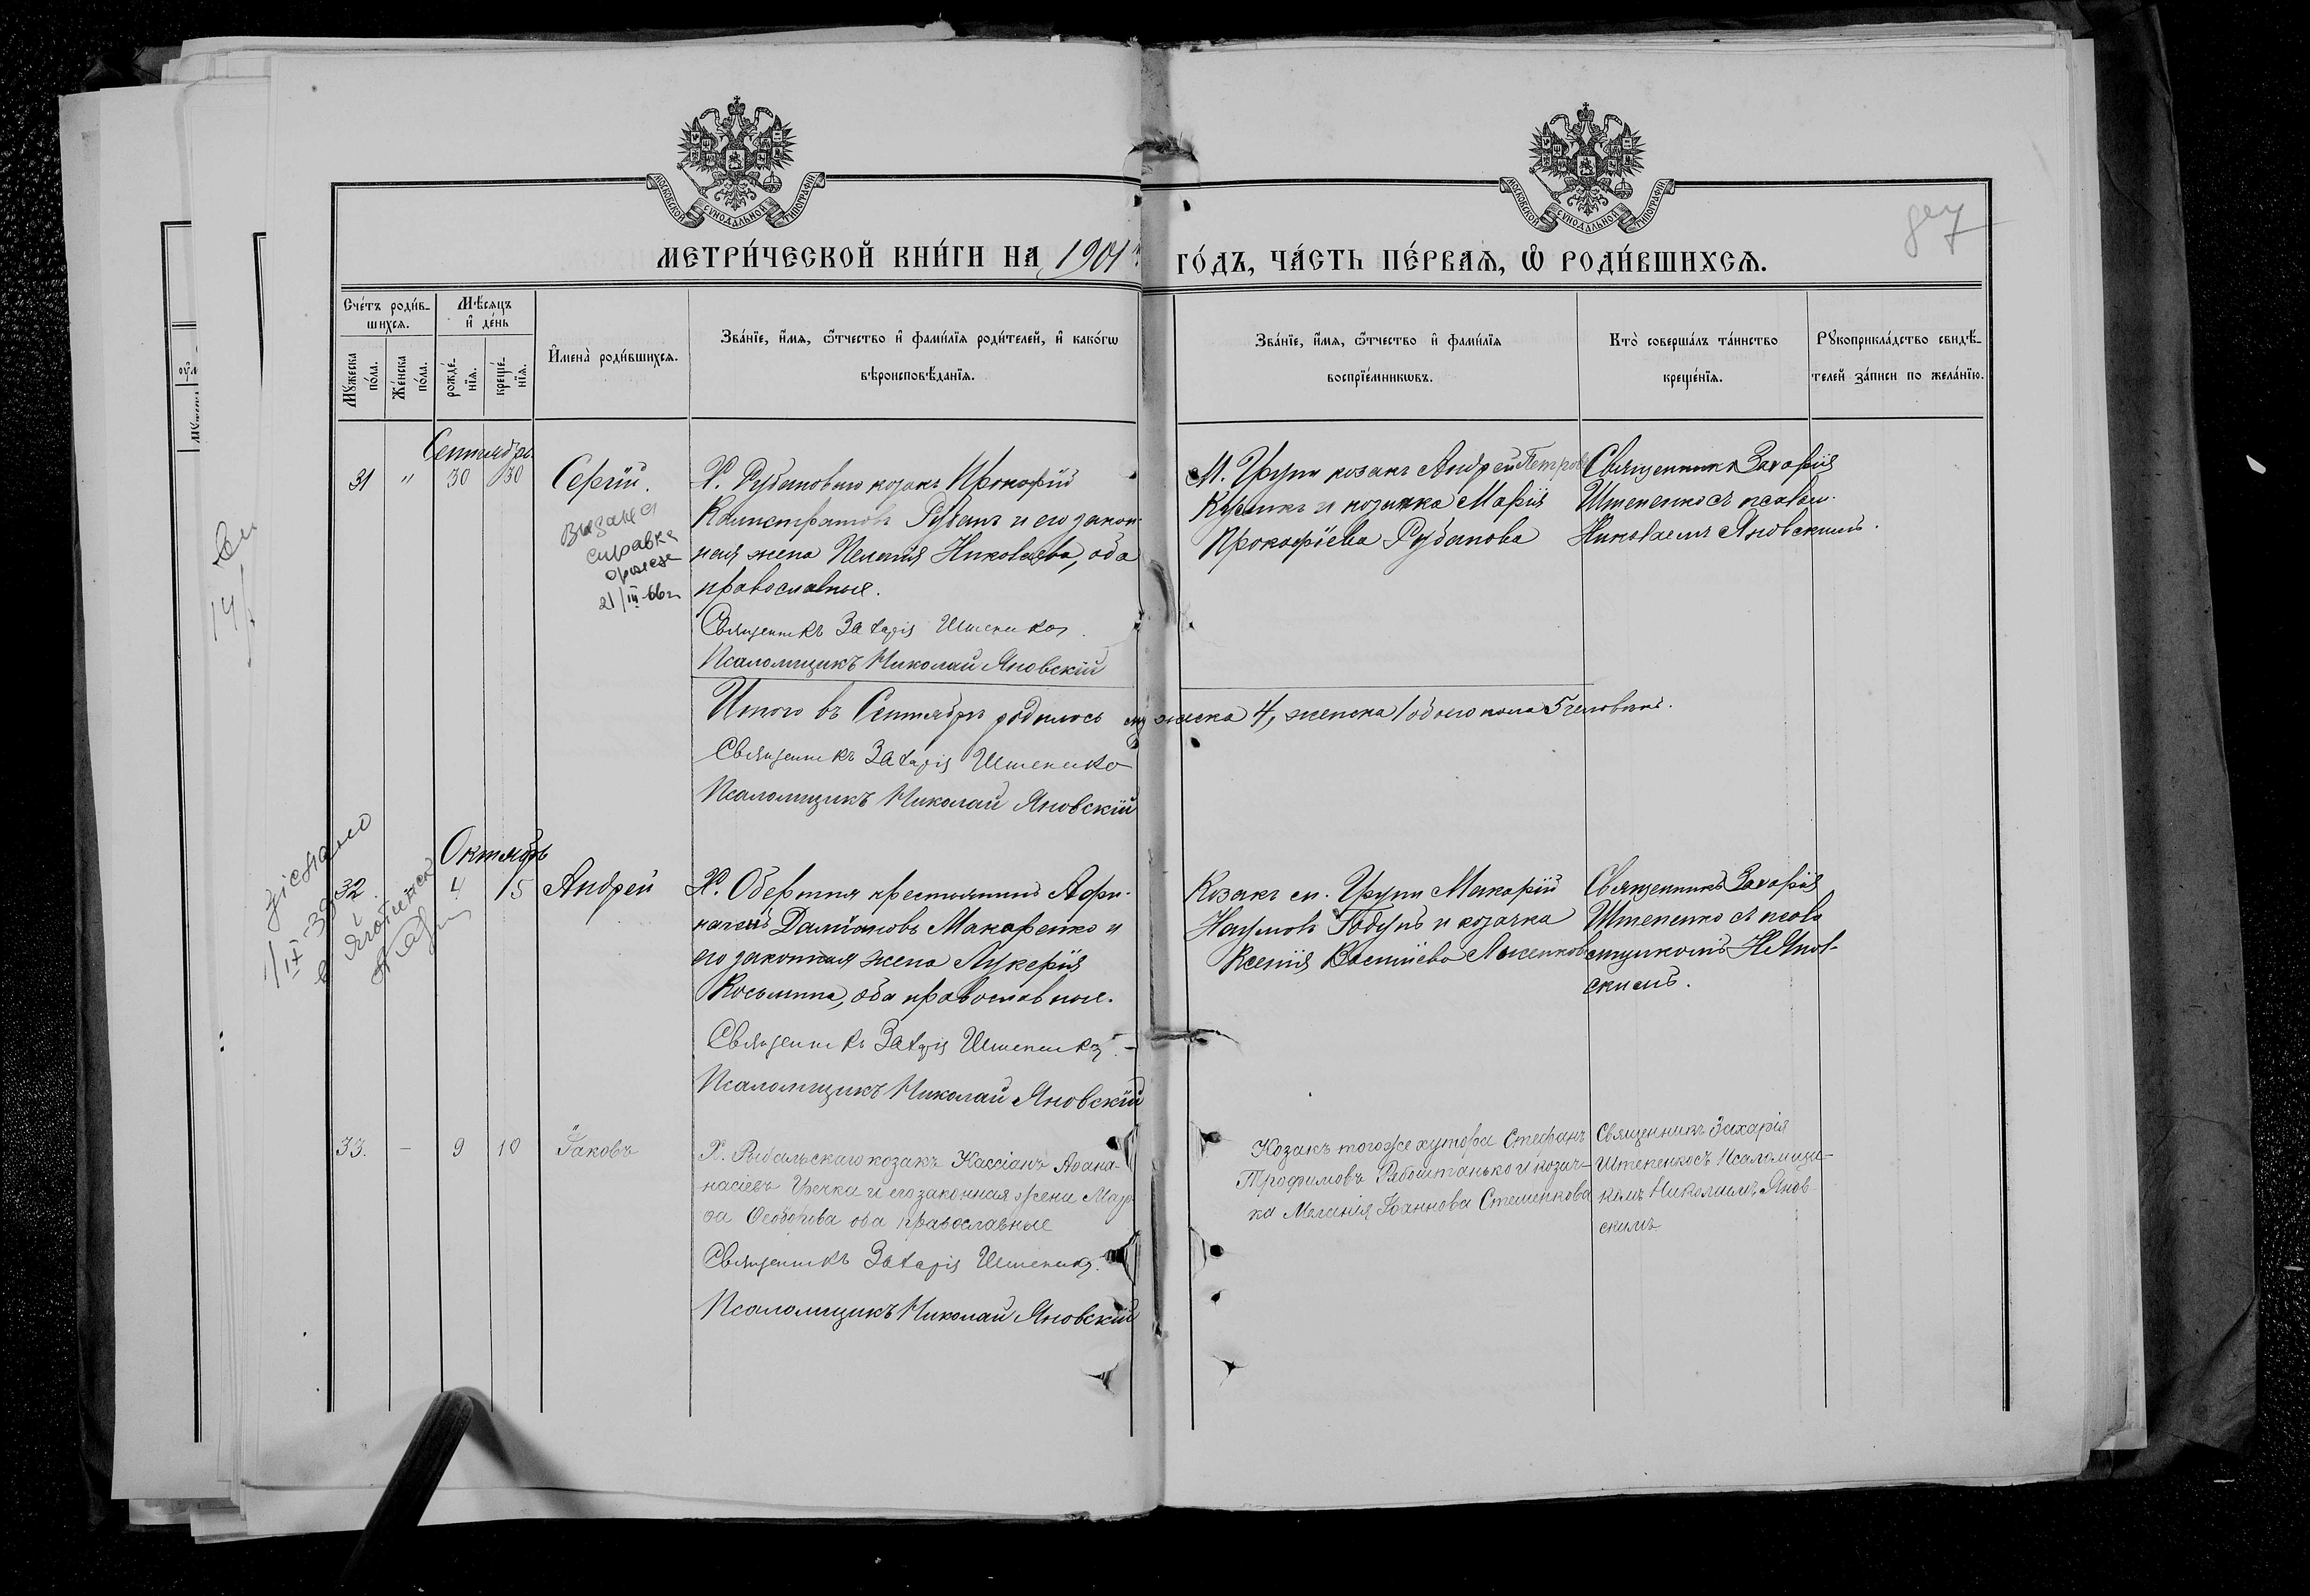 МОСКОВСКОЙ СѴНОДАЛЬНОЙ ТИПОГРАФІИ
МОСКОВСКОЙ СѴНОДАЛЬНОЙ ТИПОГРАФІИ
МЕТРИ́ЧЕСКОЙ КНИ́ГИ НА 1901й ГО́ДЪ, ЧА́СТЬ ПЕ́РВАѦ, Ѡ҆ РОДИ́ВШИХСѦ.
Сче́тъ роди́в-
шихсѧ.
Мѣ́сѧцъ
и҆ де́нь
Мꙋ́жеска
по́ла.
Же́нска
по́ла.
рожде́-
нїѧ.
креще́-
нїѧ.
И҆мена̀ роди́вшихсѧ.
Зва́нїе, и҆́мѧ, ѻ҆́тчество и҆ фами́лїѧ роди́телей, и҆ како́гѡ
вѣроисповѣ́данїѧ.
Зва́нїе, и҆́мѧ, ѻ҆́тчество и҆ фами́лїѧ
воспрїе́мникѡвъ.
Кто̀ соверша́лъ та́инство
креще́нїѧ.
Рꙋкоприкла́дство свидѣ́-
телей за́писи по жела́нїю.
Сентябрь
31 " 30 30 Сергій.
Х. Рубановаго козакъ Прокофій
Калистратовъ Рубанъ и его закон-
ная жена Пелагія Николаева, оба
православные.
Священикъ Захарія Штепенко
Псаломщикъ Николай Яновскій
Выдана
справка
21/III-66г
М. Груни козакъ Андрей Петров
и козачка Марія
Прокофіева Рубанова
Священникъ Захарія
Штепенко съ псалом.
Николаемъ Яновскимъ.
Итого въ Сентябрѣ родилось мужеска 4, женска 1 обоего пола 5 человѣкъ.
Священикъ Захарія Штепенко
Псаломщикъ Николай Яновскій
Октябрь
32 4 5 Андрей
Х. крестьянинъ Афи-
Даміановъ Макаренко и
его законная жена Лукерія
Косьмина, оба православные.
Священикъ Захарія Штепенко
Псаломщикъ Николай Яновскій
Козакъ м. Груни Макарій
Наумовъ Годунъ и козачка
Ксенія
Священникъ Захарія
Штепенко съ псало
мщикомъ Н. Янов-
скимъ.
33. — 9 10 Іаковъ
Х. Рыбальскаго козакъ Кассіанъ Аѳана-
насіевъ Гречка и его законная жена Мар-
ѳа Ѳеодорова оба православные
Священикъ Захарія Штепенко
Псаломщикъ Николай Яновскій
Козакъ того же хутора Стефанъ
Трофимовъ Рябоштанько и козач-
ка Меланія Іоаннова Стешенкова
Священникъ Захарія
Штепенко съ Псаломщи-
комъ Николаемъ Янов-
скимъ